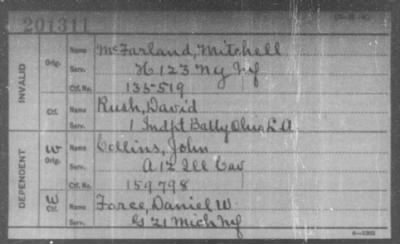 201311
INVALID
Orig. Name McFarland, Mitchell
Serv. H 123 Ny Inf
Ctf. No. 135519
Ctf. Name Rush, David
Serv. 1 Indpt Batty Ohio L A
DEPENDENT
W Orig. Name Collins, John
Serv. A 12 Ill Cav
Ctf. No. 159798
W Ctf. Name Force, Daniel W.
Serv. G 21 Mich Inf